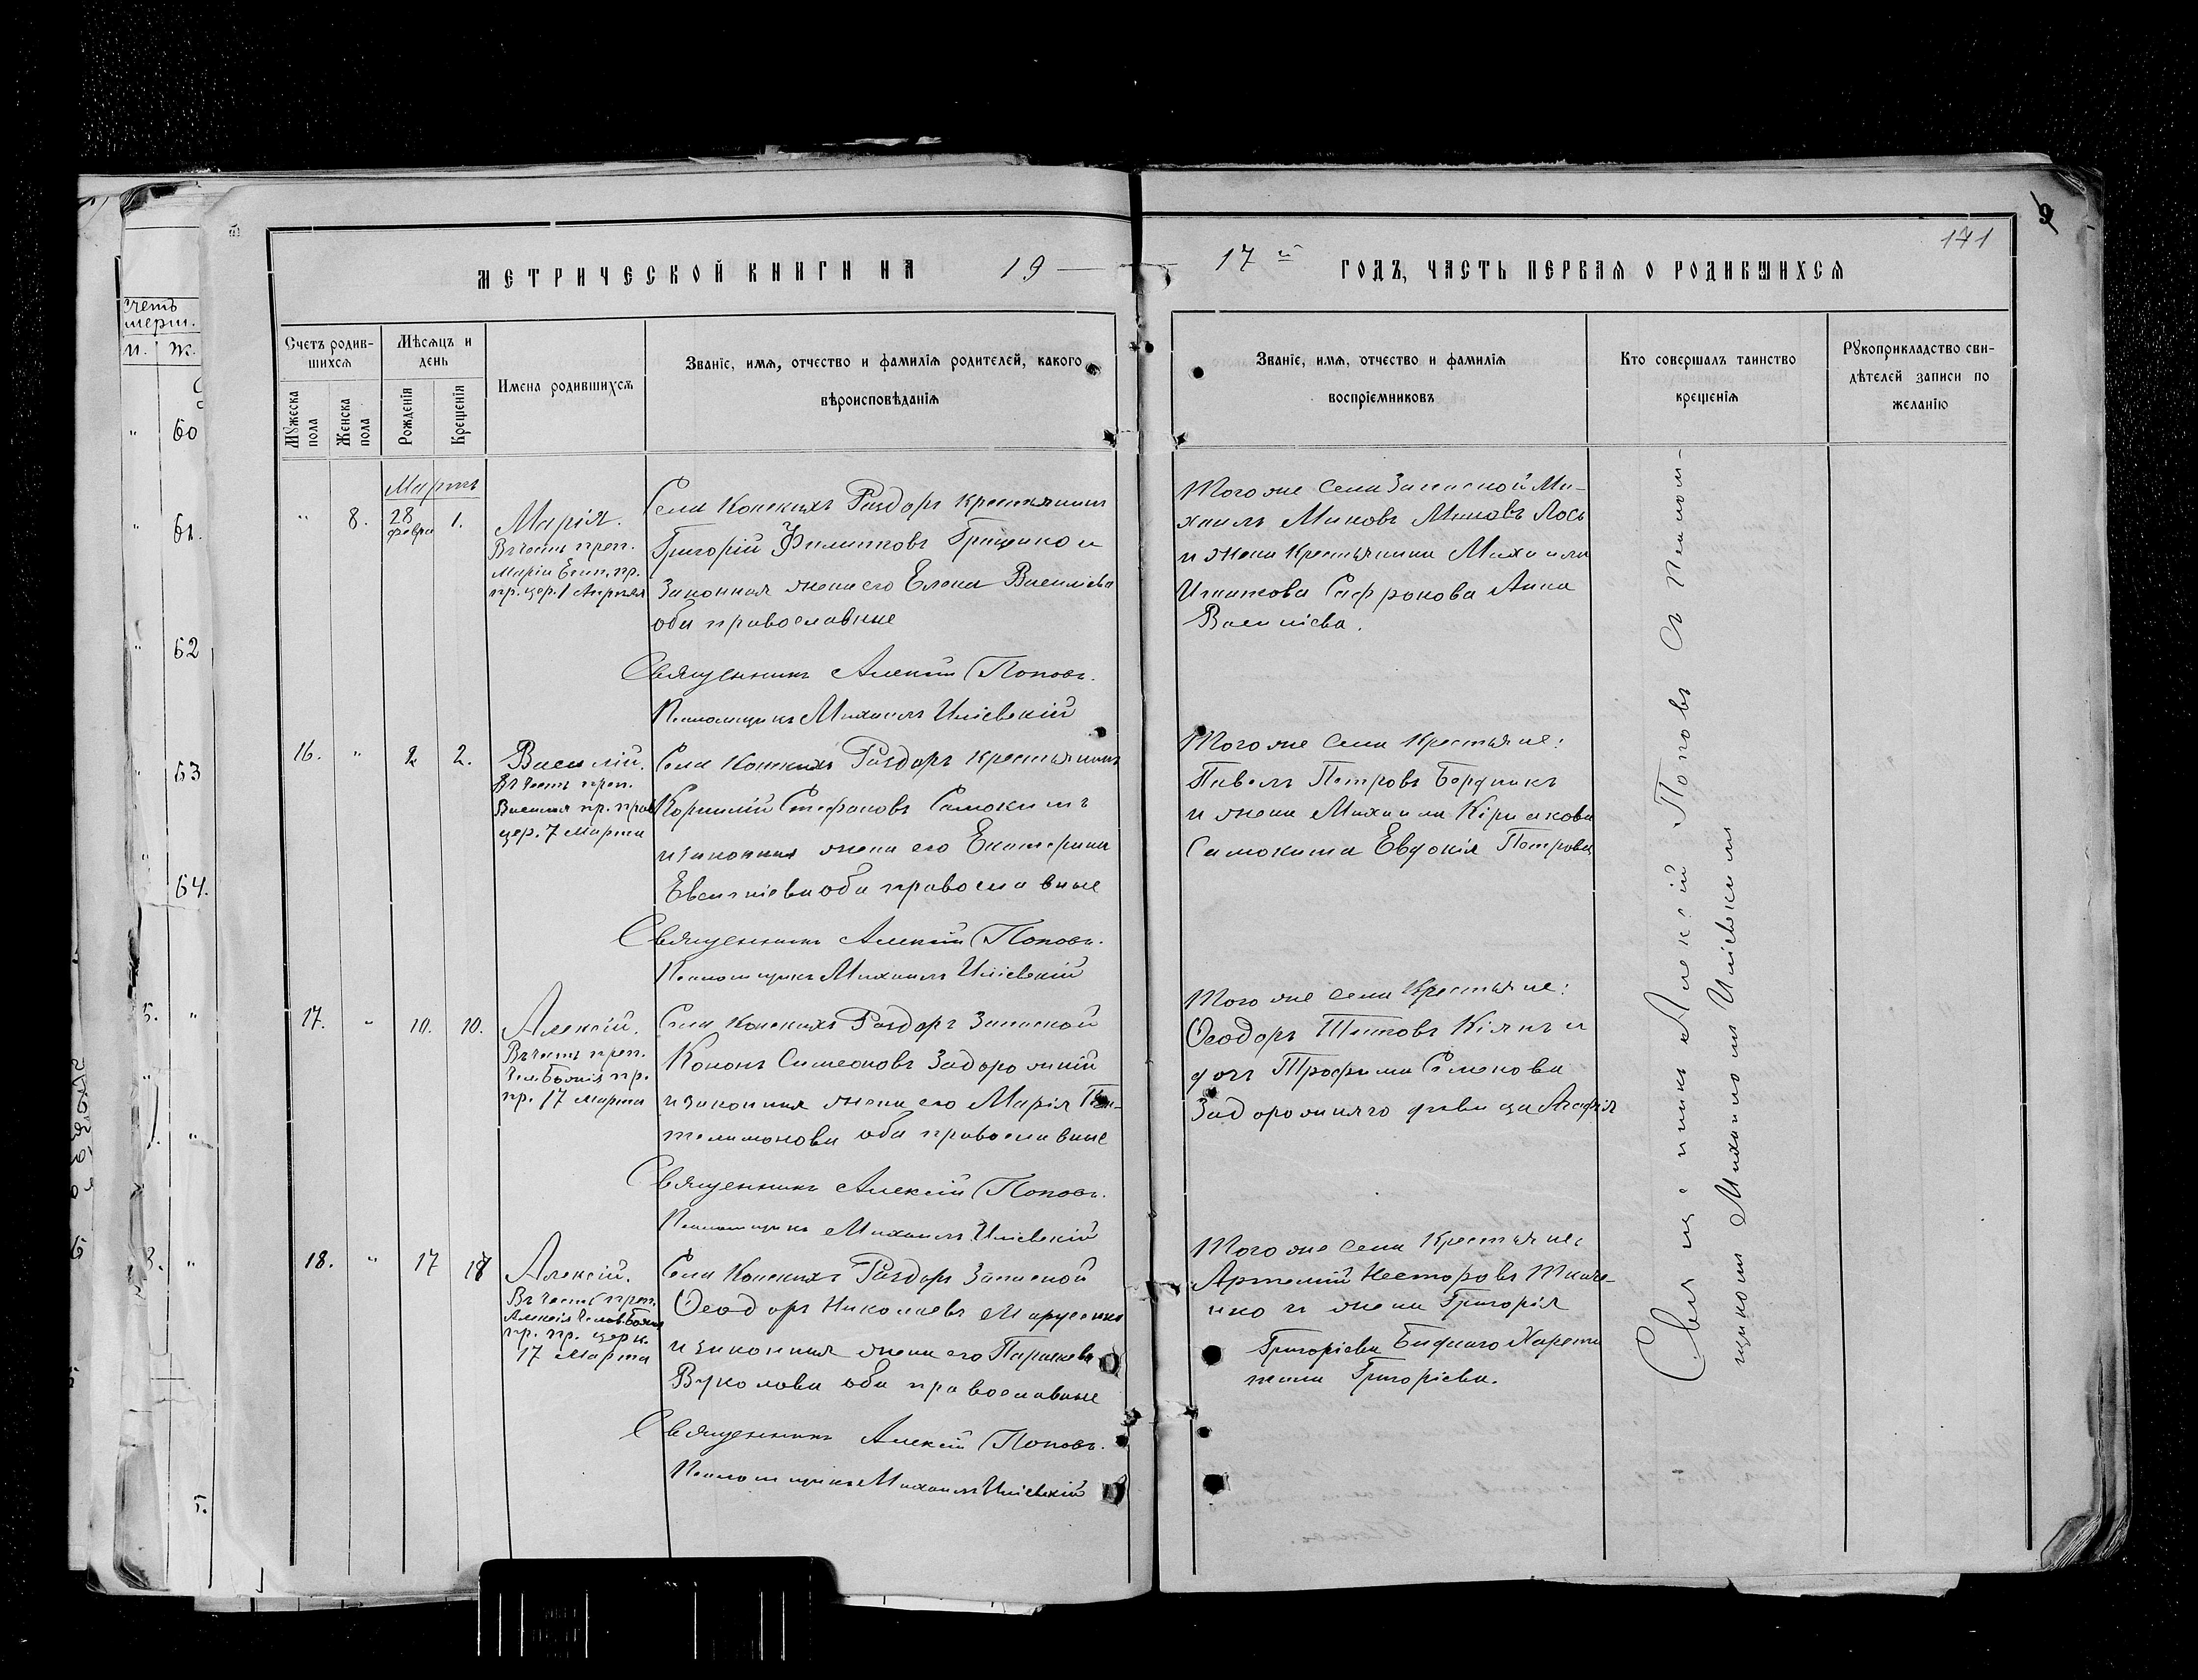 МЕТРИЧЕСКОЙ КНИГИ НА 19
17й ГОДЪ, ЧАСТЬ ПЕРВАЯ О РОДИВШИХСЯ
171
9
Счетъ родив-
шихся
Мужеска пола
Женска пола
Мѣсяцъ и
день
Рожденія
Крещенія
Имена родившихся
Званіе, имя, отчество и фамилія родителей, какого
вѣроисповѣданія
Званіе, имя, отчество и фамилія
воспріемниковъ
Кто совершалъ таинство
крещенія
Рукоприкладство сви-
дѣтелей записи по
желанію
счетъ
п. ж.
60
61.
62
63
64.
Мартъ
" 8. 28 февра 1.
Марія.
Въ честь преп.
Маріи Егип. пр.
пр. цер. 1 Апрѣля
Села Конскихъ Раздоръ крестьянинъ
Григорій Филиповъ Грищенко и
законная жена его Елена Василіева
оба православные
Священникъ Алексій Поповъ.
Псаломщикъ Михаилъ Иліевскій
Того же села Запасной Ми-
хаилъ Лось
и жена крестьянина Михаила
Сафронова Анна
Василіева.
16. " 2 2.
Василій.
Въ честь преп.
Василія пр. прав.
цер. 7 Марта
Села Конскихъ Раздоръ крестьянинъ
Корнилій Стефановъ
и законная жена его Екатерина
Евсигніева оба православные
Священникъ Алексій Поповъ.
Псаломщикъ Михаилъ Иліевскій
Того же села крестьяне:
Павелъ Петровъ Бердникъ
и жена Михаила Киріакова
Евдокія Петрова
17. " 10. 10.
Алексій.
Въ честь преп.
Чел. Божія пр.
пр. 17 Марта
Села Конскихъ Раздоръ Запасной
Кононъ Симеоновъ Задорожній
и законная жена его Марія Пан-
телимонова оба православные
Священникъ Алексій Поповъ.
Псаломщикъ Михаилъ Иліевскій
Того же села крестьяне:
Ѳеодоръ Титовъ Кіянъ и
дочь Трофима Семенова
Задорожняго дѣвица Агафія
18. " 17 18
Алексій.
Въ честь преп.
Алексія Челов. Божія
пр. пр. церк.
17 Марта
Села Конскихъ Раздоръ Запасной
Ѳеодоръ Николаевъ Марусенко
и законная жена его Параскева
Вуколова оба православные
Священникъ Алексій Поповъ.
Псаломщикъ Михаилъ Иліевскій
Того же села крестьяне:
Артемій Несторовъ Ткаче-
нко и жена Григорія
Григоріева Бидного Харети-
Григоріева.
Священникъ Алексій Поповъ съ Псалом-
щикомъ Михаиломъ Иліевскимъ